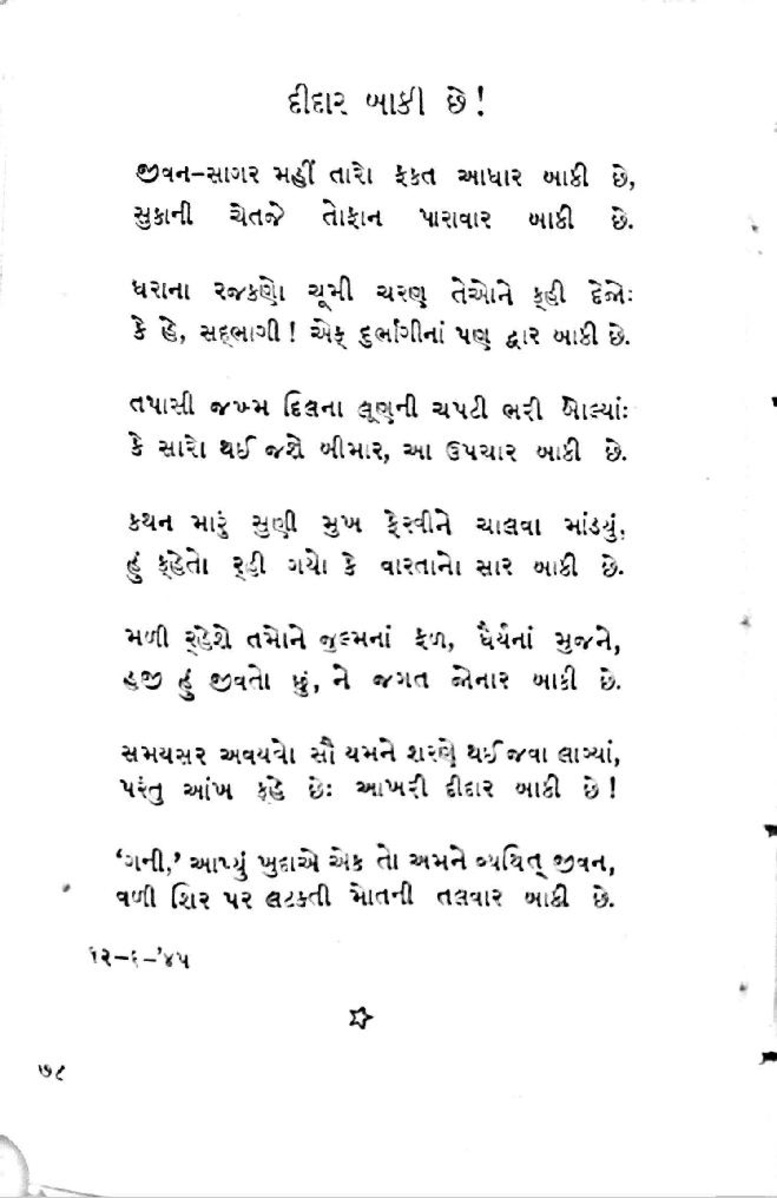 દીદાર બાકી છે!
જીવન-સાગર મહીં તારો ફક્ત આધાર બાકી છે,
સુકાની ચેતજે તોફાન પારાવાર બાકી છે.
ધરાના રજકણો ચૂમી ચરણ તેઓને ક્‌હી દેજોઃ
કે હે, સદ્‌ભાગી! એક દુર્ભાગીનાં પણ દ્વાર બાકી છે.
તપાસી જખ્મ દિલના લૂણની ચપટી ભરી બોલ્યાંઃ
કે સારો થઈ જશે બીમાર, આ ઉપચાર બાકી છે.
કથન મારું સુણી મુખ ફેરવીને ચાલવા માંડયું,
હું ક્‌હેતો ર્‌હી ગયો કે વારતાનો સાર બાકી છે.
મળી ર્‌હેશે તમોને જુલ્મનાં ફળ, ધૈર્યનાં મુજને,
હજી હું જીવતો છું, ને જગત જોનાર બાકી છે.
સમયસર અવયવો સૌ યમને શરણે થઈ જવા લાગ્યાં,
પરંતુ આંખ કહે છેઃ આખરી દીદાર બાકી છે!
‘ગની,’ આપ્યું ખુદાએ એક તો અમને વ્યથિત્ જીવન,
વળી શિર પર લટકતી મોતની તલવાર બાકી છે.
૧૨-૬-’૪૫
૭૮